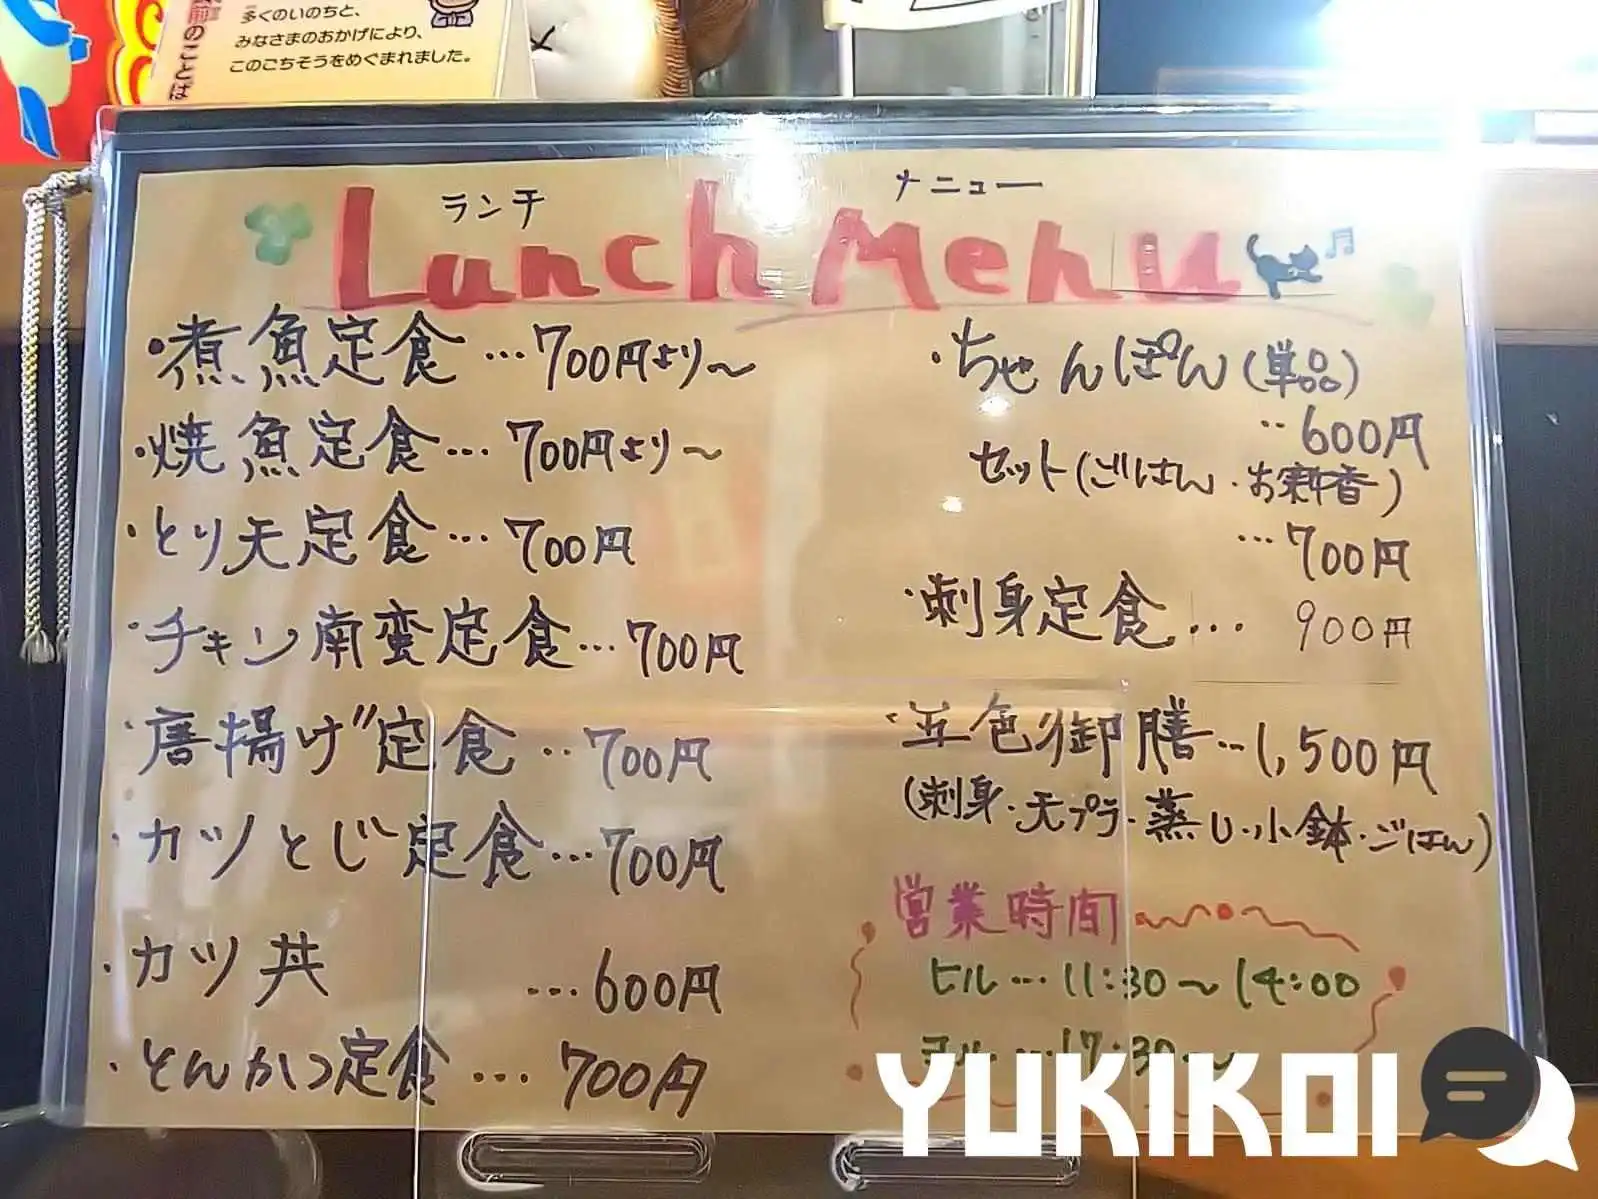 多くのいのちと、
みなさまのおかげにより、
このごちそうをめぐまれました。
前のことば
ランチ メニュー
Lunch Menu
・煮魚定食…700円より〜
・焼魚定食…700円より〜
・とり天定食…700円
・チキン南蛮定食…700円
・唐揚げ定食‥700円
・カツとじ定食…700円
・カツ丼 …600円
・とんかつ定食…700円
・ちゃんぽん(単品)
‥600円
セット(ごはん・お新香)
…700円
・刺身定食… 900円
・五色御膳…1,500円
(刺身・天プラ・蒸し・小鉢・ごはん)
営業時間
ヒル…11:30〜14:00
ヨル…17:30〜
YUKIKOI